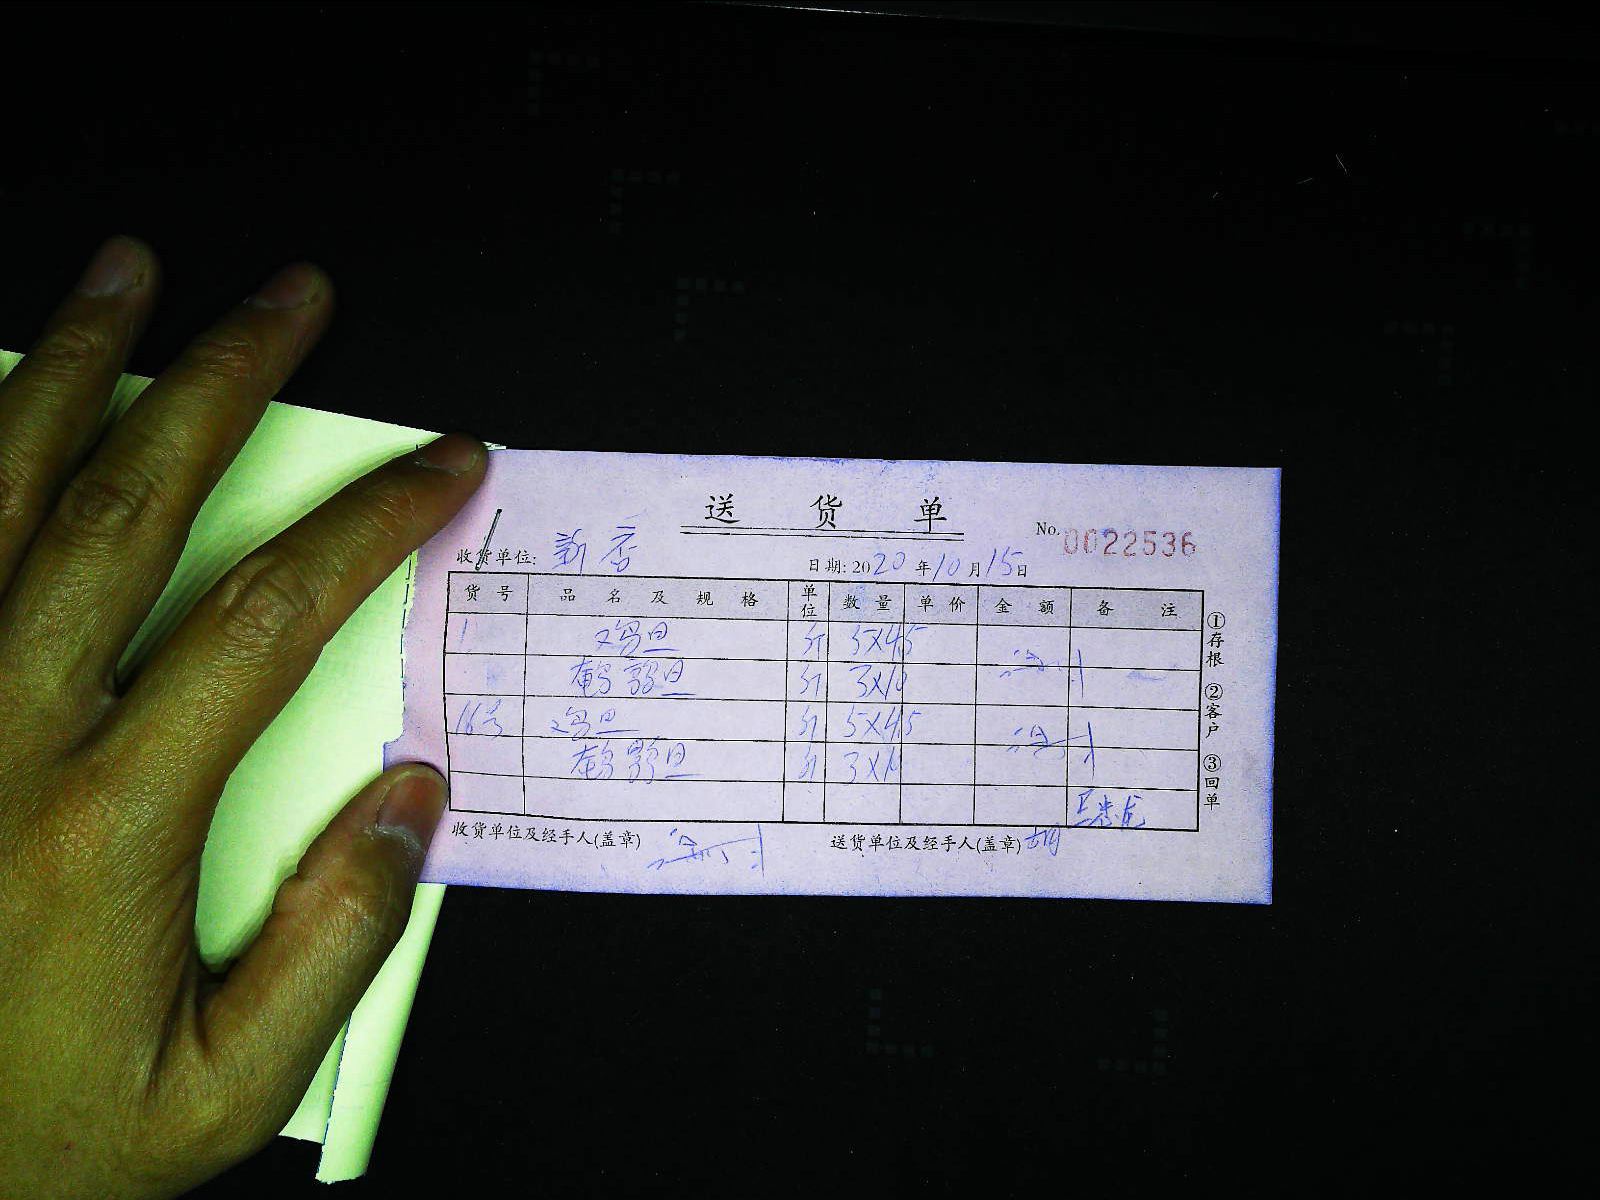 送 货 单
No. 0022536
收货单位: 新店 日期: 2020年10月15日
货号 品名及规格 单位 数量 单价 金额 备注
1 鸡旦 斤 5X45
鹌鹑旦 斤 3X10
16号 鸡旦 斤 5X45
鹌鹑旦 斤 3X10
收货单位及经手人(盖章) 送货单位及经手人(盖章)
①存根 ②客户 ③回单